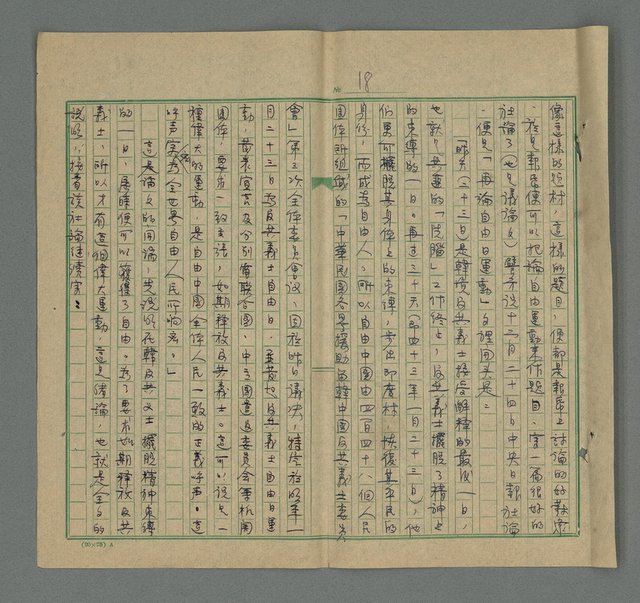 № 18
像這樣的題材，這樣的題目，便都是報章上討論的好對象
。於是報章便可以把論自由運動來作題目，寫一篇很好的
社論了（也是議論文）譬如說十二月二十四日中央日報社論
，便是「再論自由日運動」文裡開頭是：
「昨天（二十三日）是韓境反共義士接受解釋的最後一日，
也就是共產的「洗腦」工作終止，反共義士擺脫了精神上
的束縛的一日。再過三十天（即四十三年一月二十三日），他
們更可擺脫其身体上的束縛，步出印度村，恢復其平民的
身份，而成為自由人。所以自由中國由四百四十八個人民
團体所組成的「中華民國各界援助留韓中國反共義士委員
會」第三次全体委員會議，因於昨日議決，特定於明年一
月二十三日為反共義士自由日，並發起反共義士自由日運
動，發表宣言及分別電聯合國，中立國遣返委員會等机関
團体，要求一致主張，如期釋放反共義士。這可以說是一
種偉大的運動，是自由中國全体人民一致的正義呼声。這
呼声實為全世界自由人民所响應。」
這是論文的開端，先說明在韓反共義士擺脫精神束縛
的一日，屆時便可以獲得了自由。為了要求如期釋放反共
義士，所以才有這個偉大運動，這是緒論，也就是全文的
說明，接著該社論繼續寫：
(20×25) A